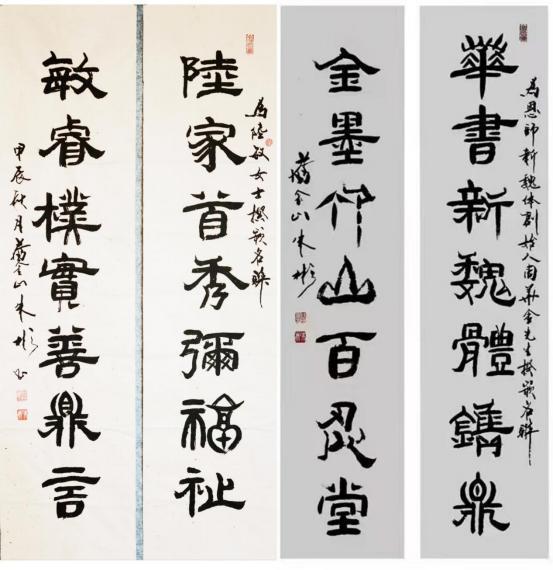 華書新魏體鐫鼎
為恩師新魏体創始人華金先生撰嵌名聯
金墨竹山百忍堂
舊金山朱彬
陸家首秀彌福祉
為陸敏女士撰嵌名聯
敏睿樸實善鼎言
甲辰秋月舊金山朱彬書